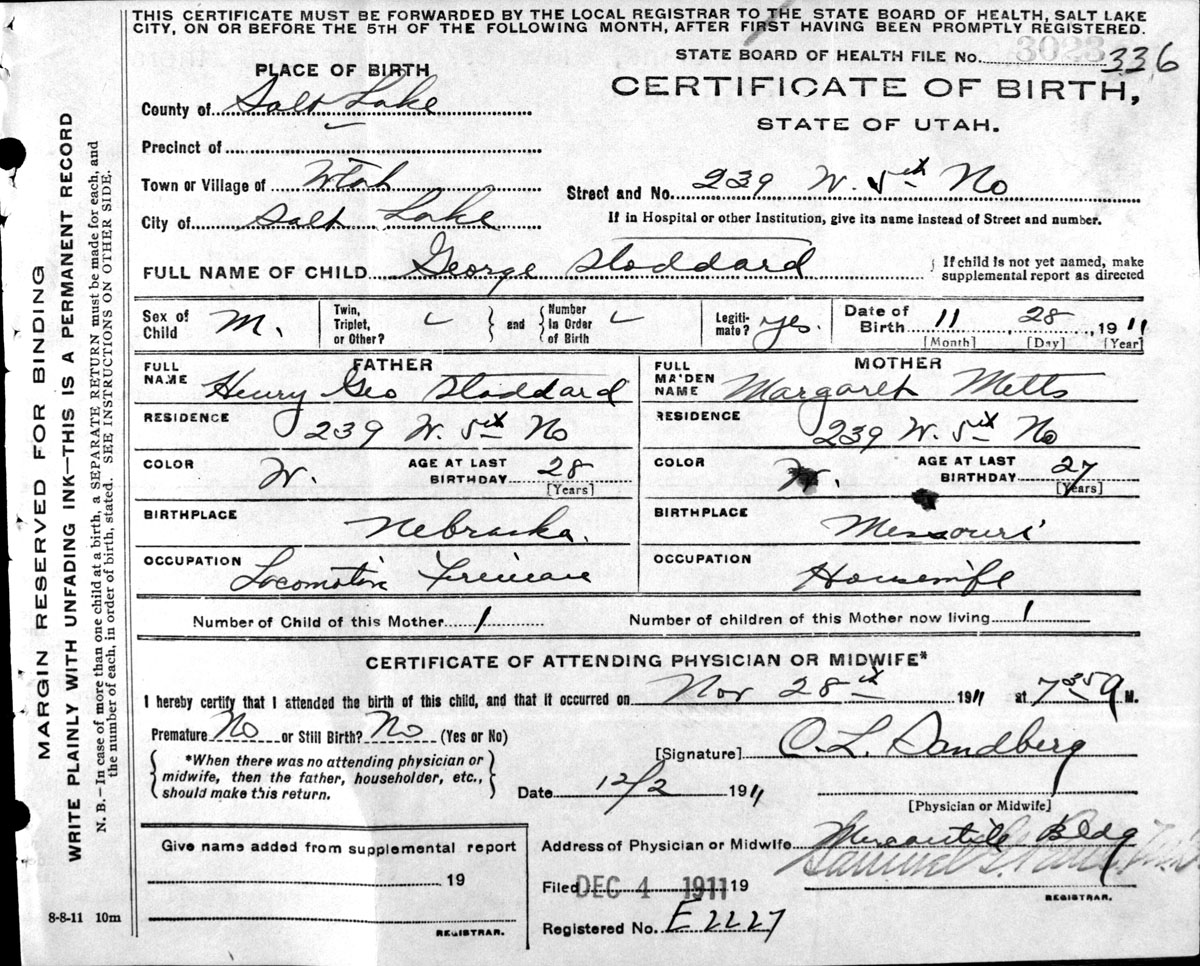 THIS CERTIFICATE MUST BE FORWARDED BY THE LOCAL REGISTRAR TO THE STATE BOARD OF HEALTH, SALT LAKE
CITY, ON OR BEFORE THE 5TH OF THE FOLLOWING MONTH, AFTER FIRST HAVING BEEN PROMPTLY REGISTERED.
STATE BOARD OF HEALTH FILE No. 3023 336
PLACE OF BIRTH
CERTIFICATE OF BIRTH,
STATE OF UTAH.
County of Salt Lake
Precinct of
Town or Village of Utah
Street and No. 239 W. 5th No
City of Salt Lake
If in Hospital or other Institution, give its name instead of Street and number.
FULL NAME OF CHILD George Stoddard
If child is not yet named, make
supplemental report as directed
Sex of Child M.
Twin, Triplet, or Other?
and
Number In Order of Birth
Legiti-mate? yes.
Date of Birth 11 28, 1911
[Month] [Day] [Year]
FATHER
FULL NAME Henry Geo Stoddard
MOTHER
FULL MAIDEN NAME Margaret Metts
RESIDENCE 239 W. 5th No
RESIDENCE 239 W. 5th No
COLOR W. AGE AT LAST BIRTHDAY 28 [Years]
COLOR W. AGE AT LAST BIRTHDAY 27 [Years]
BIRTHPLACE Nebraska.
BIRTHPLACE Missouri
OCCUPATION Locomotive Fireman
OCCUPATION Housewife
Number of Child of this Mother 1 Number of children of this Mother now living 1
CERTIFICATE OF ATTENDING PHYSICIAN OR MIDWIFE*
I hereby certify that I attended the birth of this child, and that it occurred on Nov 28th 1911 at 7 35 A M.
Premature No or Still Birth? No (Yes or No)
[Signature] O. L. Sandberg
*When there was no attending physician or
midwife, then the father, householder, etc.,
should make this return.
Date 12/2 1911
[Physician or Midwife]
Give name added from supplemental report
19
REGISTRAR.
Address of Physician or Midwife Mercantile Bldg
Filed DEC 4 1911 19
REGISTRAR.
Registered No. E2227
8-8-11 10m
MARGIN RESERVED FOR BINDING
WRITE PLAINLY WITH UNFADING INK—THIS IS A PERMANENT RECORD
N. B.—In case of more than one child at a birth, a SEPARATE RETURN must be made for each, and
the number of each, in order of birth, stated. SEE INSTRUCTIONS ON OTHER SIDE.